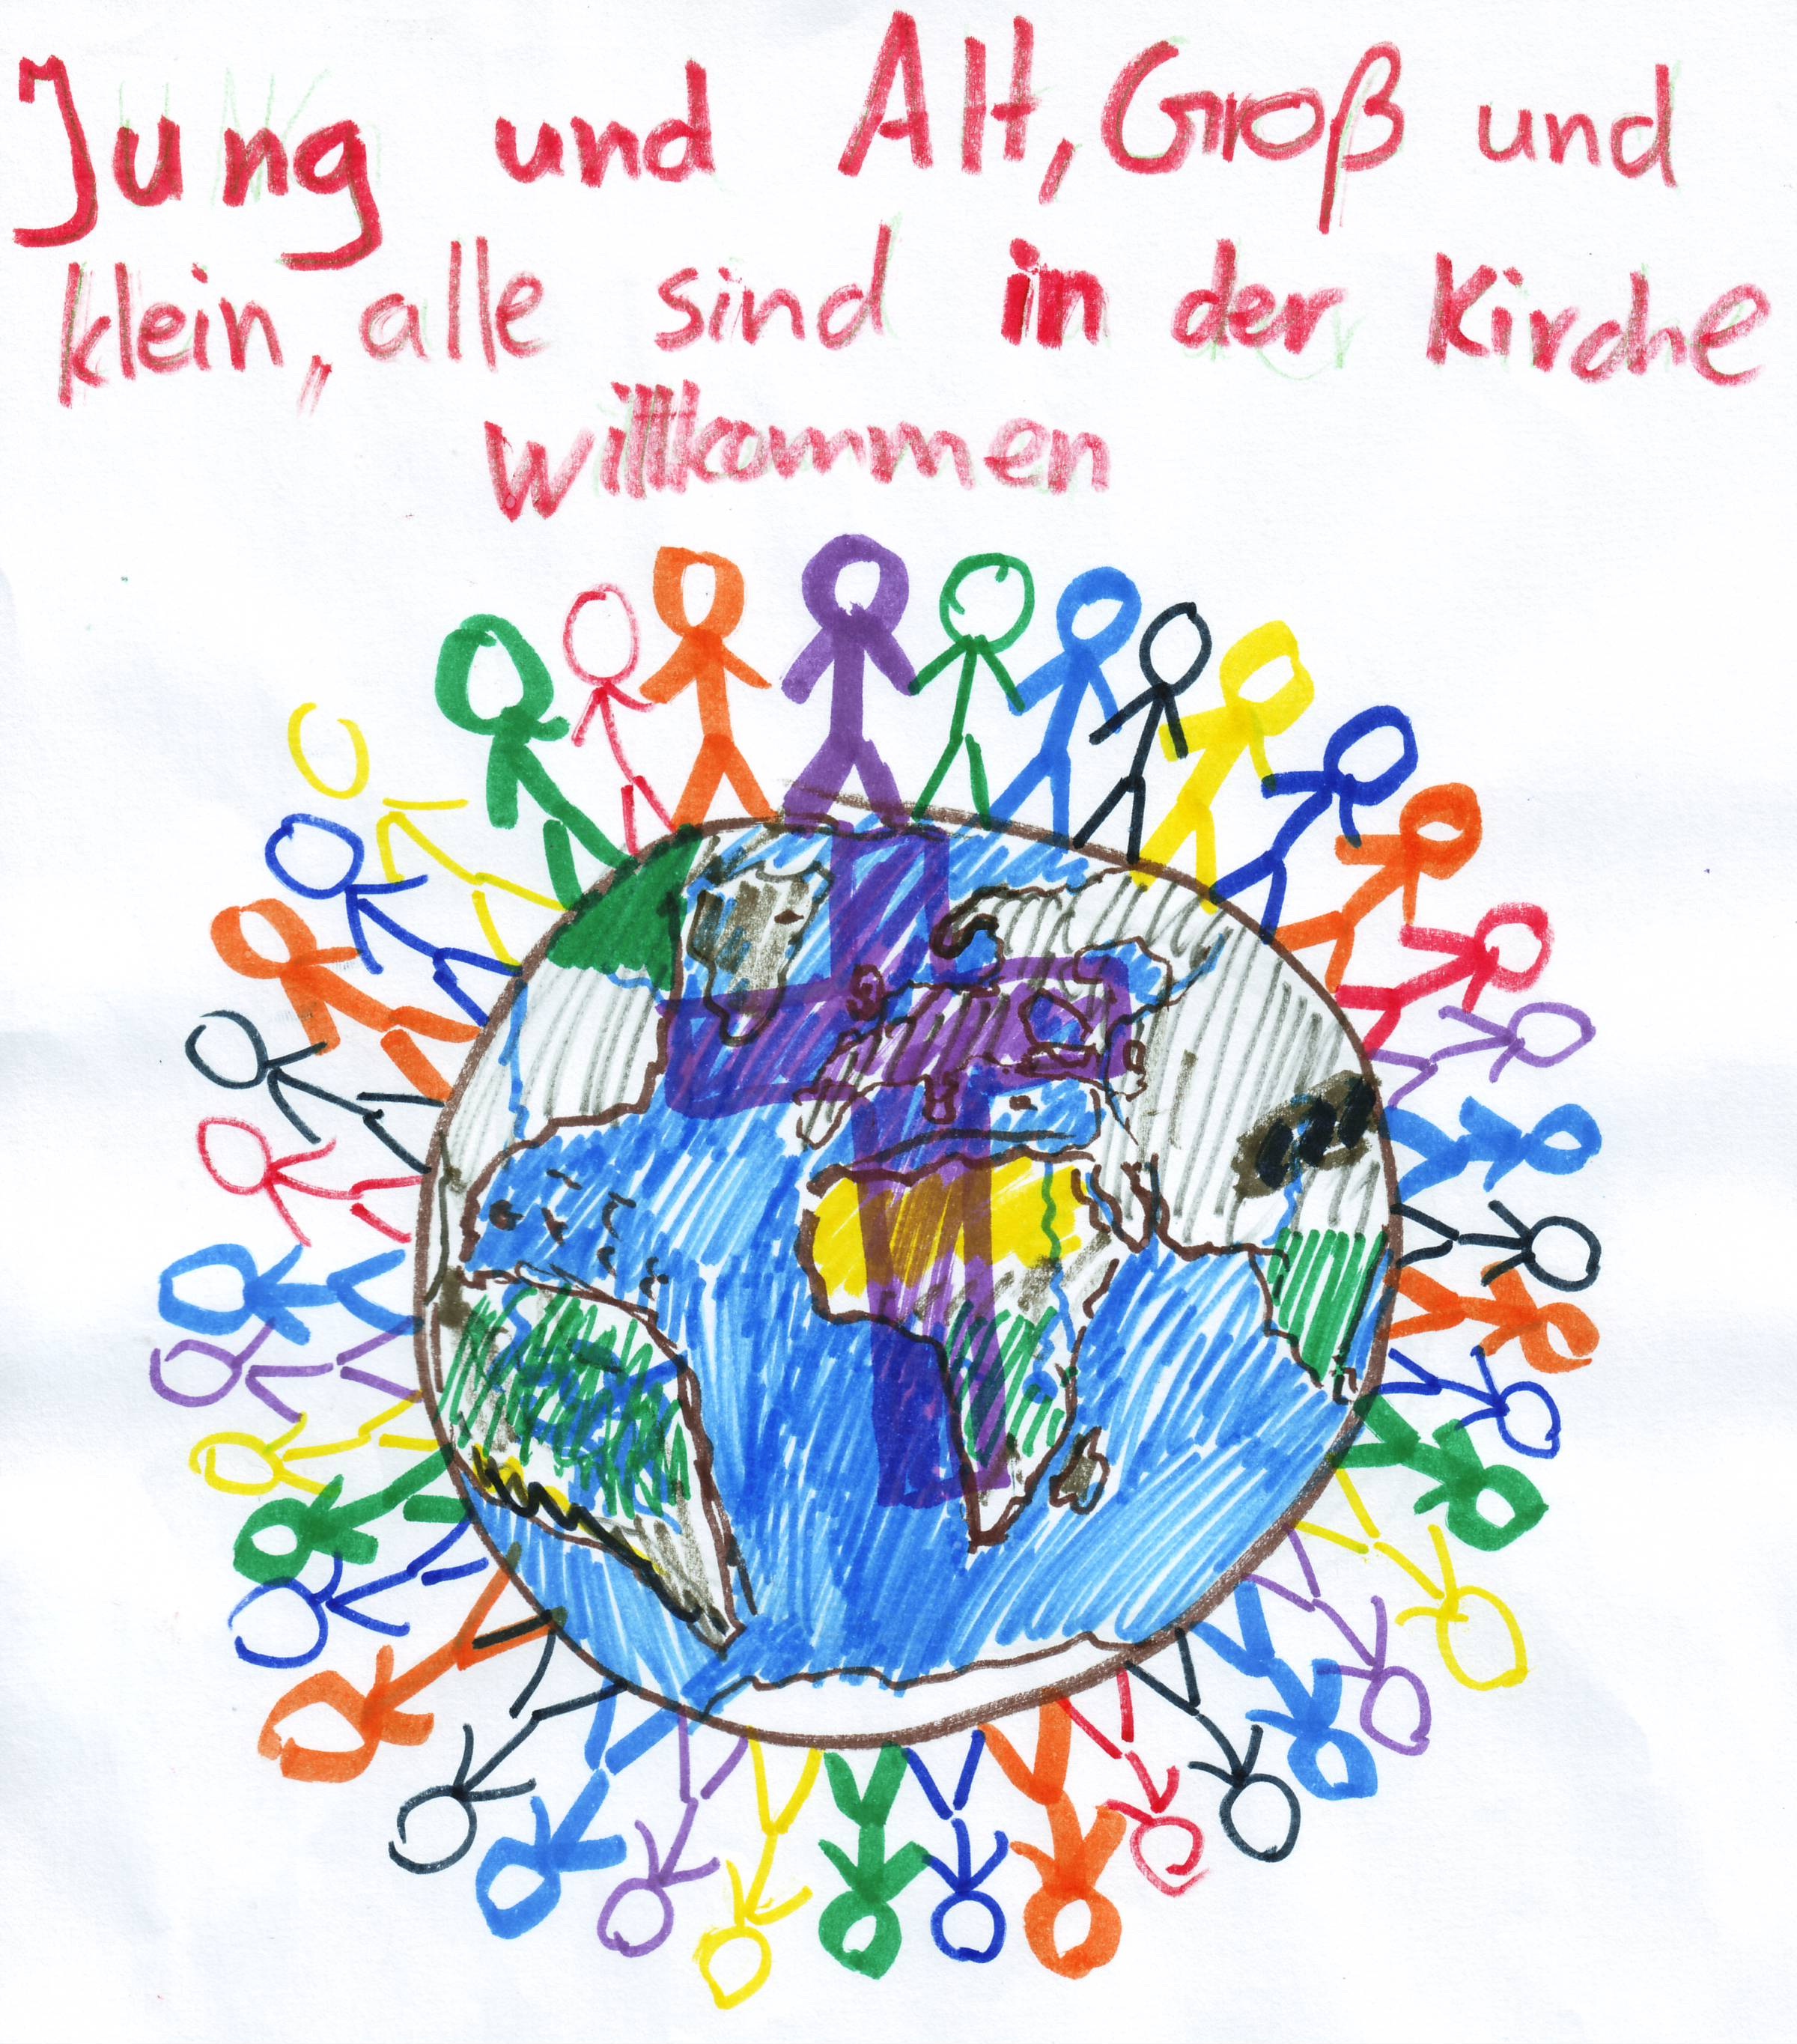 Jung und Alt, Groß und
klein, alle sind in der Kirche
willkommen